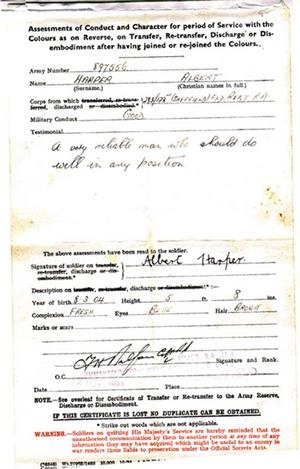 Assessments of Conduct and Character for period of Service with the
Colours as on Reverse, on Transfer, Re-transfer, Discharge or Dis-
embodiment after having joined or re-joined the Colours.
Army Number 897556
Name HARPER ALBERT
(Surname.) (Christian names in full.)
Corps from which transferred, re-trans-
ferred, discharged or disembodied.* FD REGT. RA
Military Conduct GOOD
Testimonial
A very reliable man who should do
well in any position
The above assessments have been read to the soldier.
Signature of soldier on transfer, Albert Harper
re-transfer, discharge or dis-
embodiment.*
Description on transfer, re-transfer, discharge or disembodiment.*
Year of birth 8 3 04 Height 5 ft. 8 ins.
Complexion FRESH Eyes BLUE Hair BROWN
Marks or scars
Signature and Rank.
O.C.
Date Place
NOTE.—See overleaf for Certificate of Transfer or Re-transfer to the Army Reserve,
Discharge or Disembodiment.
IF THIS CERTIFICATE IS LOST NO DUPLICATE CAN BE OBTAINED.
* Strike out words which are not applicable.
WARNING.—Soldiers on quitting His Majesty's Service are hereby reminded that the
unauthorised communication by them to another person at any time of any
information they may have acquired which might be useful to an enemy in
war renders them liable to prosecution under the Official Secrets Acts.